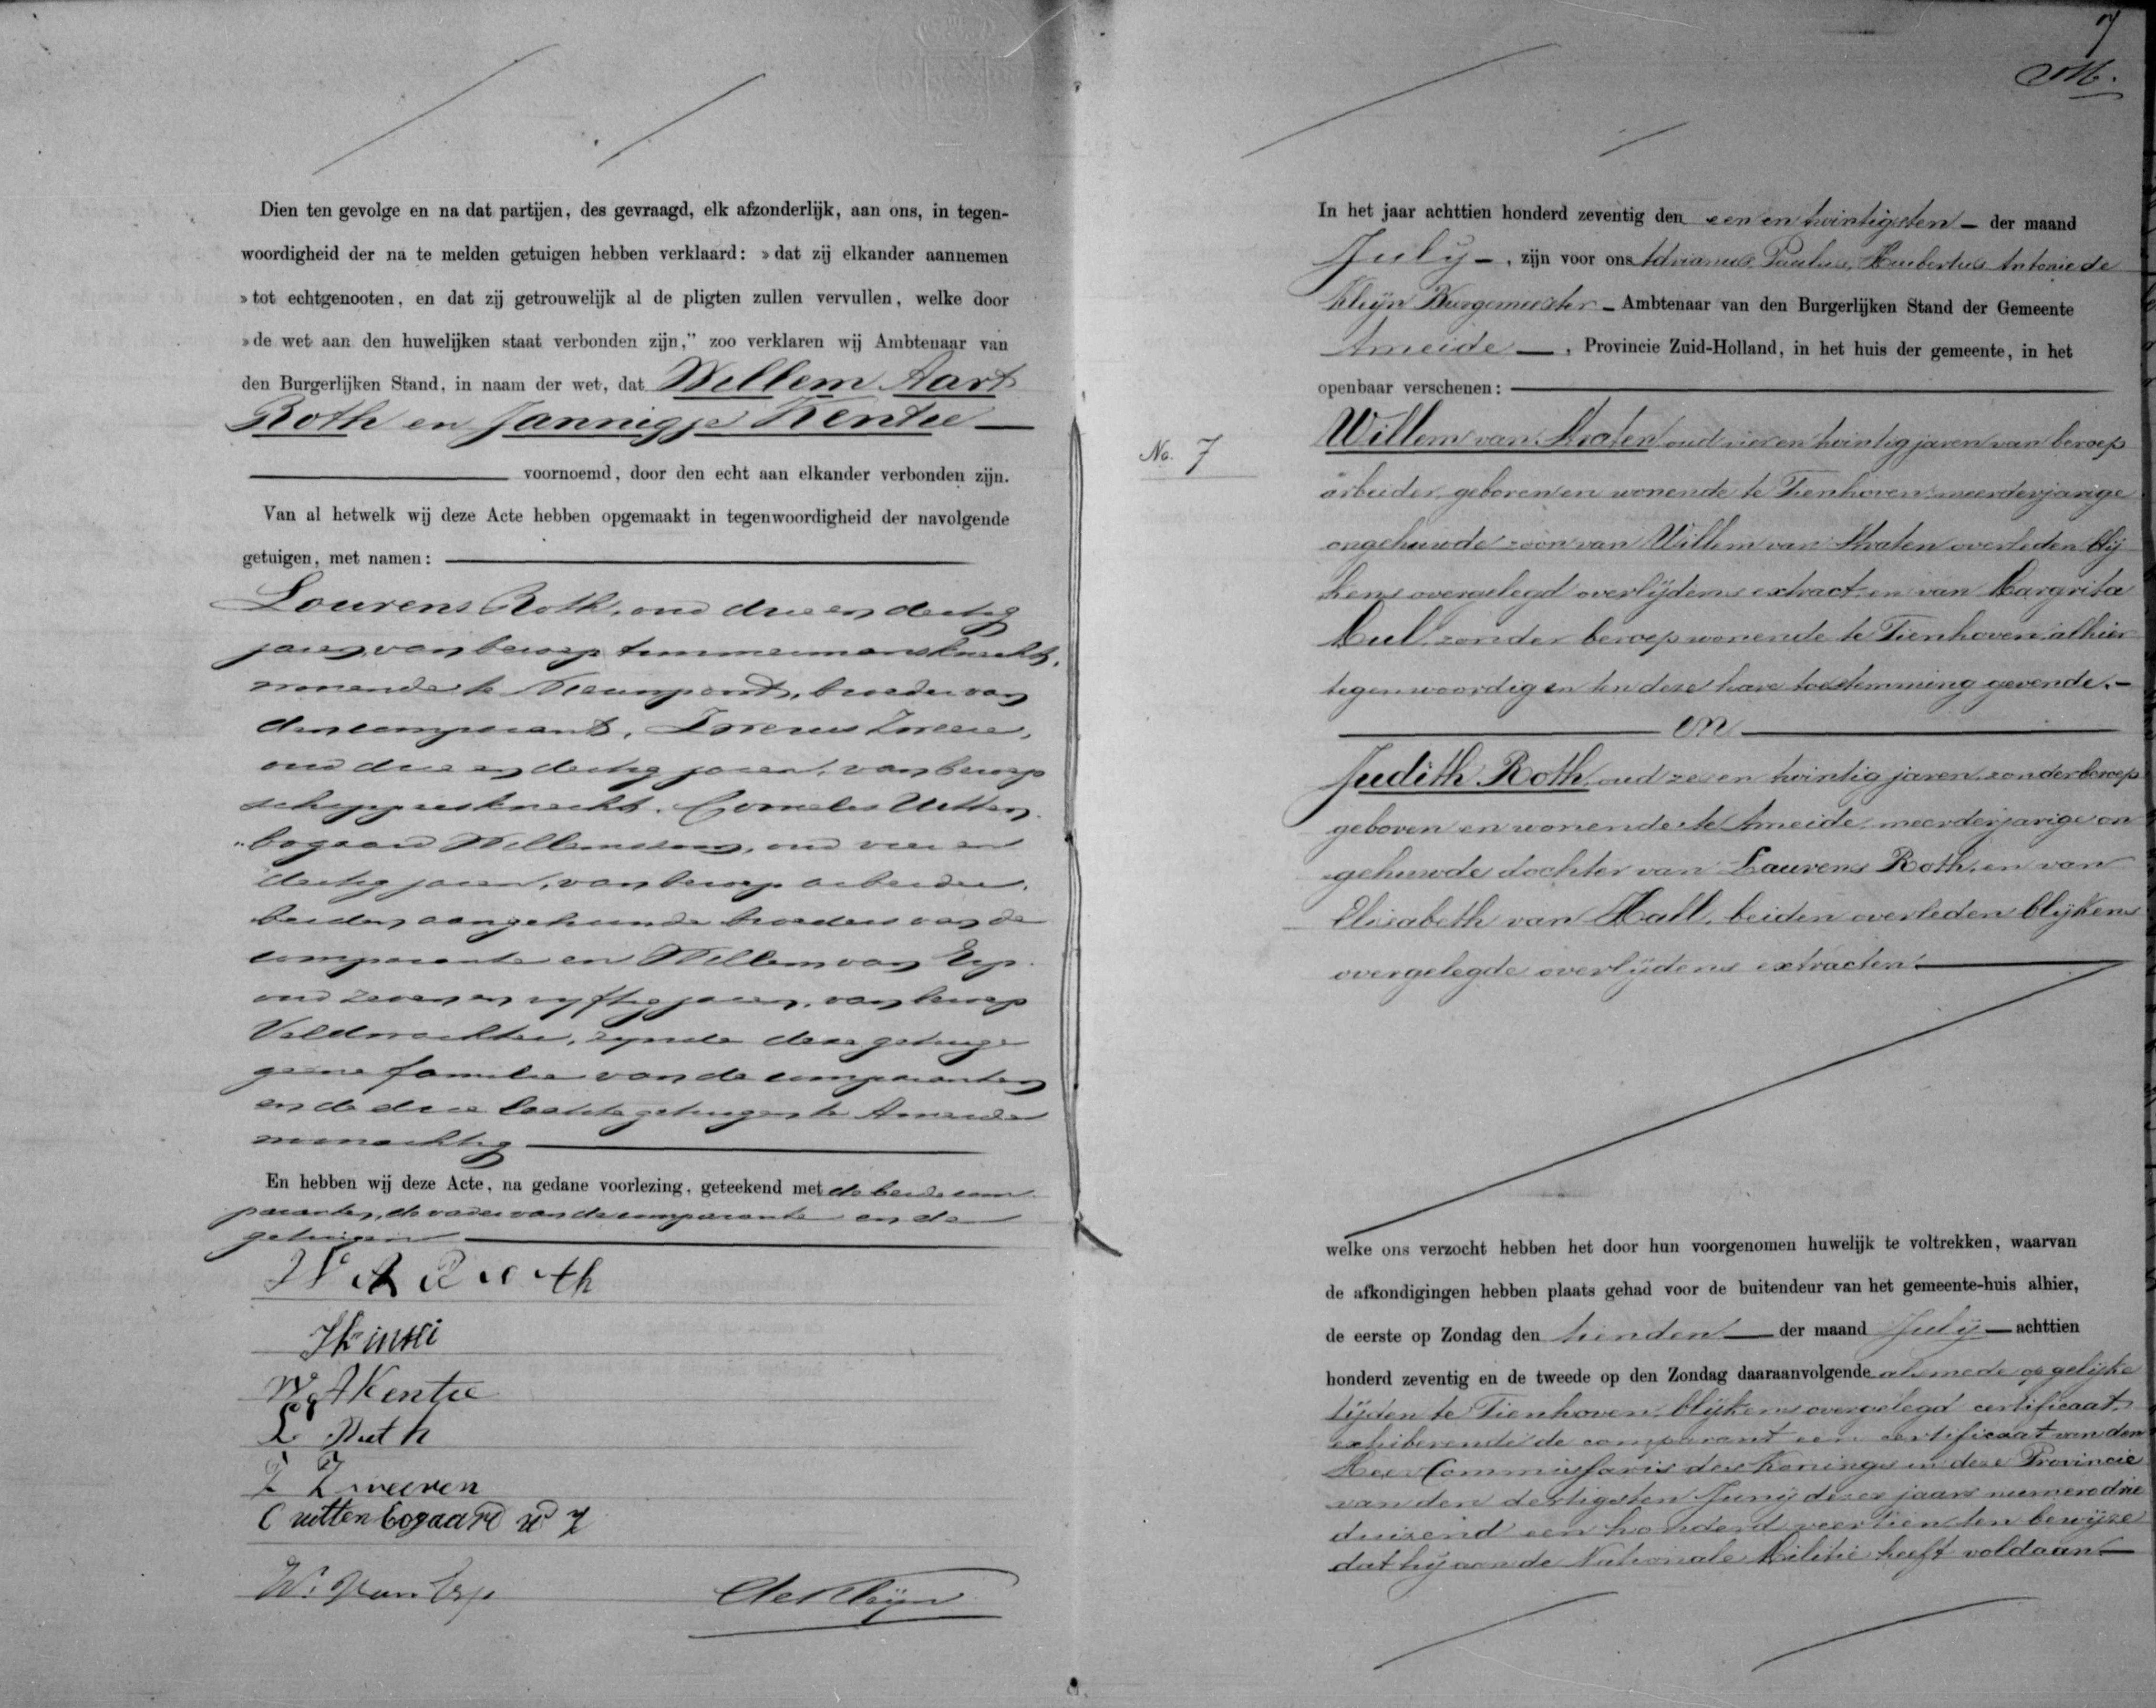 Dien ten gevolge en na dat partijen, des gevraagd, elk afzonderlijk, aan ons, in tegen-
woordigheid der na te melden getuigen hebben verklaard: »dat zij elkander aannemen
»tot echtgenooten, en dat zij getrouwelijk al de pligten zullen vervullen, welke door
»de wet aan den huwelijken staat verbonden zijn,” zoo verklaren wij Ambtenaar van
den Burgerlijken Stand, in naam der wet, dat Willem Aart
Roth en Jannigje Kentie
voornoemd, door den echt aan elkander verbonden zijn.
Van al hetwelk wij deze Acte hebben opgemaakt in tegenwoordigheid der navolgende
getuigen, met namen:
Lourens Roth, oud drie en dertig
jaren, van beroep timmermansknecht,
wonende te Nieuwpoort, broeder van
den comparant,
oud drie en dertig jaren, van beroep
schippersknecht, Cornelis Uitten
„bogaard Willemszoon, oud vier en
dertig jaren, van beroep arbeider,
beiden aangehuwde broeders van de
comparante en Willem van Erp
oud zeven en vyftig jaren, van beroep
Veldwachter, zynde deze getuige
geene familie van de comparanten
en de drie laatste getuigen te Ameide
woonachtig
En hebben wij deze Acte, na gedane voorlezing, geteekend met de beide com
paranten, de vader van de comparante en de
getuigen
W A Roth
W. A Kentie
L Roth
Z Zweeren
C uittenbogaard wz
W. van Erp
de Kleijn
7
In het jaar achttien honderd zeventig den een en twintigsten der maand
July, zijn voor ons Adrianus Paulus Huibertus Antonie de
Kleijn Burgemeester Ambtenaar van den Burgerlijken Stand der Gemeente
Ameide, Provincie Zuid-Holland, in het huis der gemeente, in het
openbaar verschenen:
No. 7
Willem van Straten oud vier en twintig jaren van beroep
arbeider, geboren en wonende te Tienhoven meerderjarige
ongehuwde zoon van Willem van Straten overleden blij
kens overgelegd overlijdens extract en van Margrita
Mul zonder beroep wonende te Tienhoven alhier
tegenwoordig en ten deze hare toestemming gevende.
en
Judith Roth, oud zes en twintig jaren, zonder beroep
geboren en wonende te Ameide, meerderjarige on
gehuwde dochter van Laurens Roth, en van
Elisabeth van Hall, beiden overleden blijkens
overgelegde overlijdens extracten
welke ons verzocht hebben het door hun voorgenomen huwelijk te voltrekken, waarvan
de afkondigingen hebben plaats gehad voor de buitendeur van het gemeente-huis alhier,
de eerste op Zondag den tienden der maand July achttien
honderd zeventig en de tweede op den Zondag daaraanvolgende alsmede op gelijke
tijden te Tienhoven, blijkens overgelegd certificaat,
exhiberende de comparant een certificaat van den
Heer Commissaris des Konings in deze Provincie
van den dertigsten Junij dezes jaars numero drie
duizend een honderd veertien ten bewijze
dat hij aan de Nationale Militie heeft voldaan